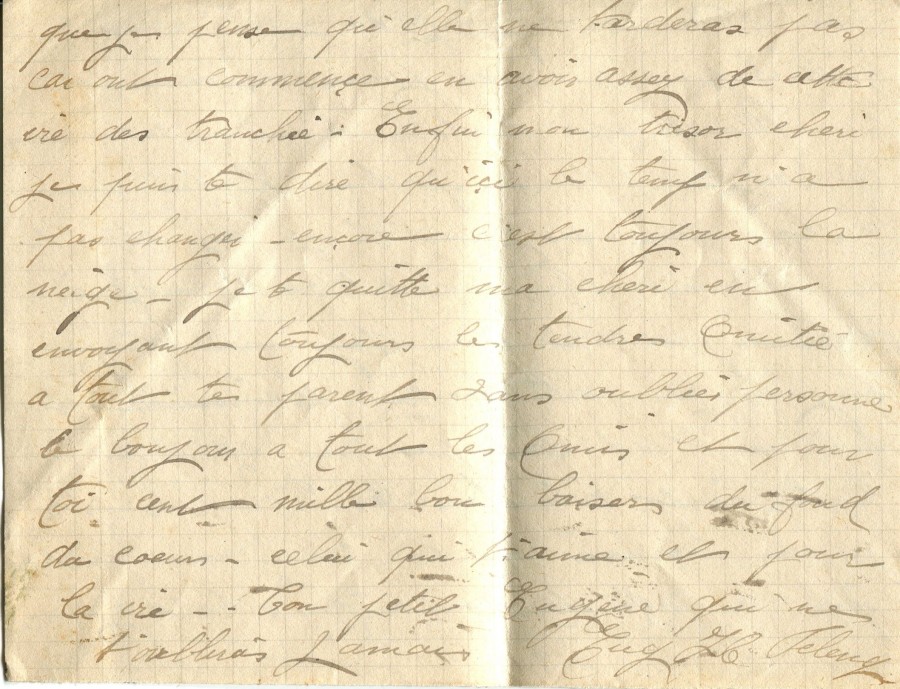 que je pense qu'elle ne tarderas pas
car ont commençe en avoir assez de cette
vie des tranchée : Enfin mon trésor cheri
je puis te dire qu'içi le temp n'a
pas changer - encore c'est toujours la
neige - je te quitte ma cheri en
envoyant toujours les tendres Amitié
a tout tes parent sans oublier personne
le bonjour a tout les Amis et pour
toi cent mille bon baisers du fond
du coeurs - celui qui t'aime et pour
la vie - - Ton petit Eugene qui ne
t'oublieras jamais Eug